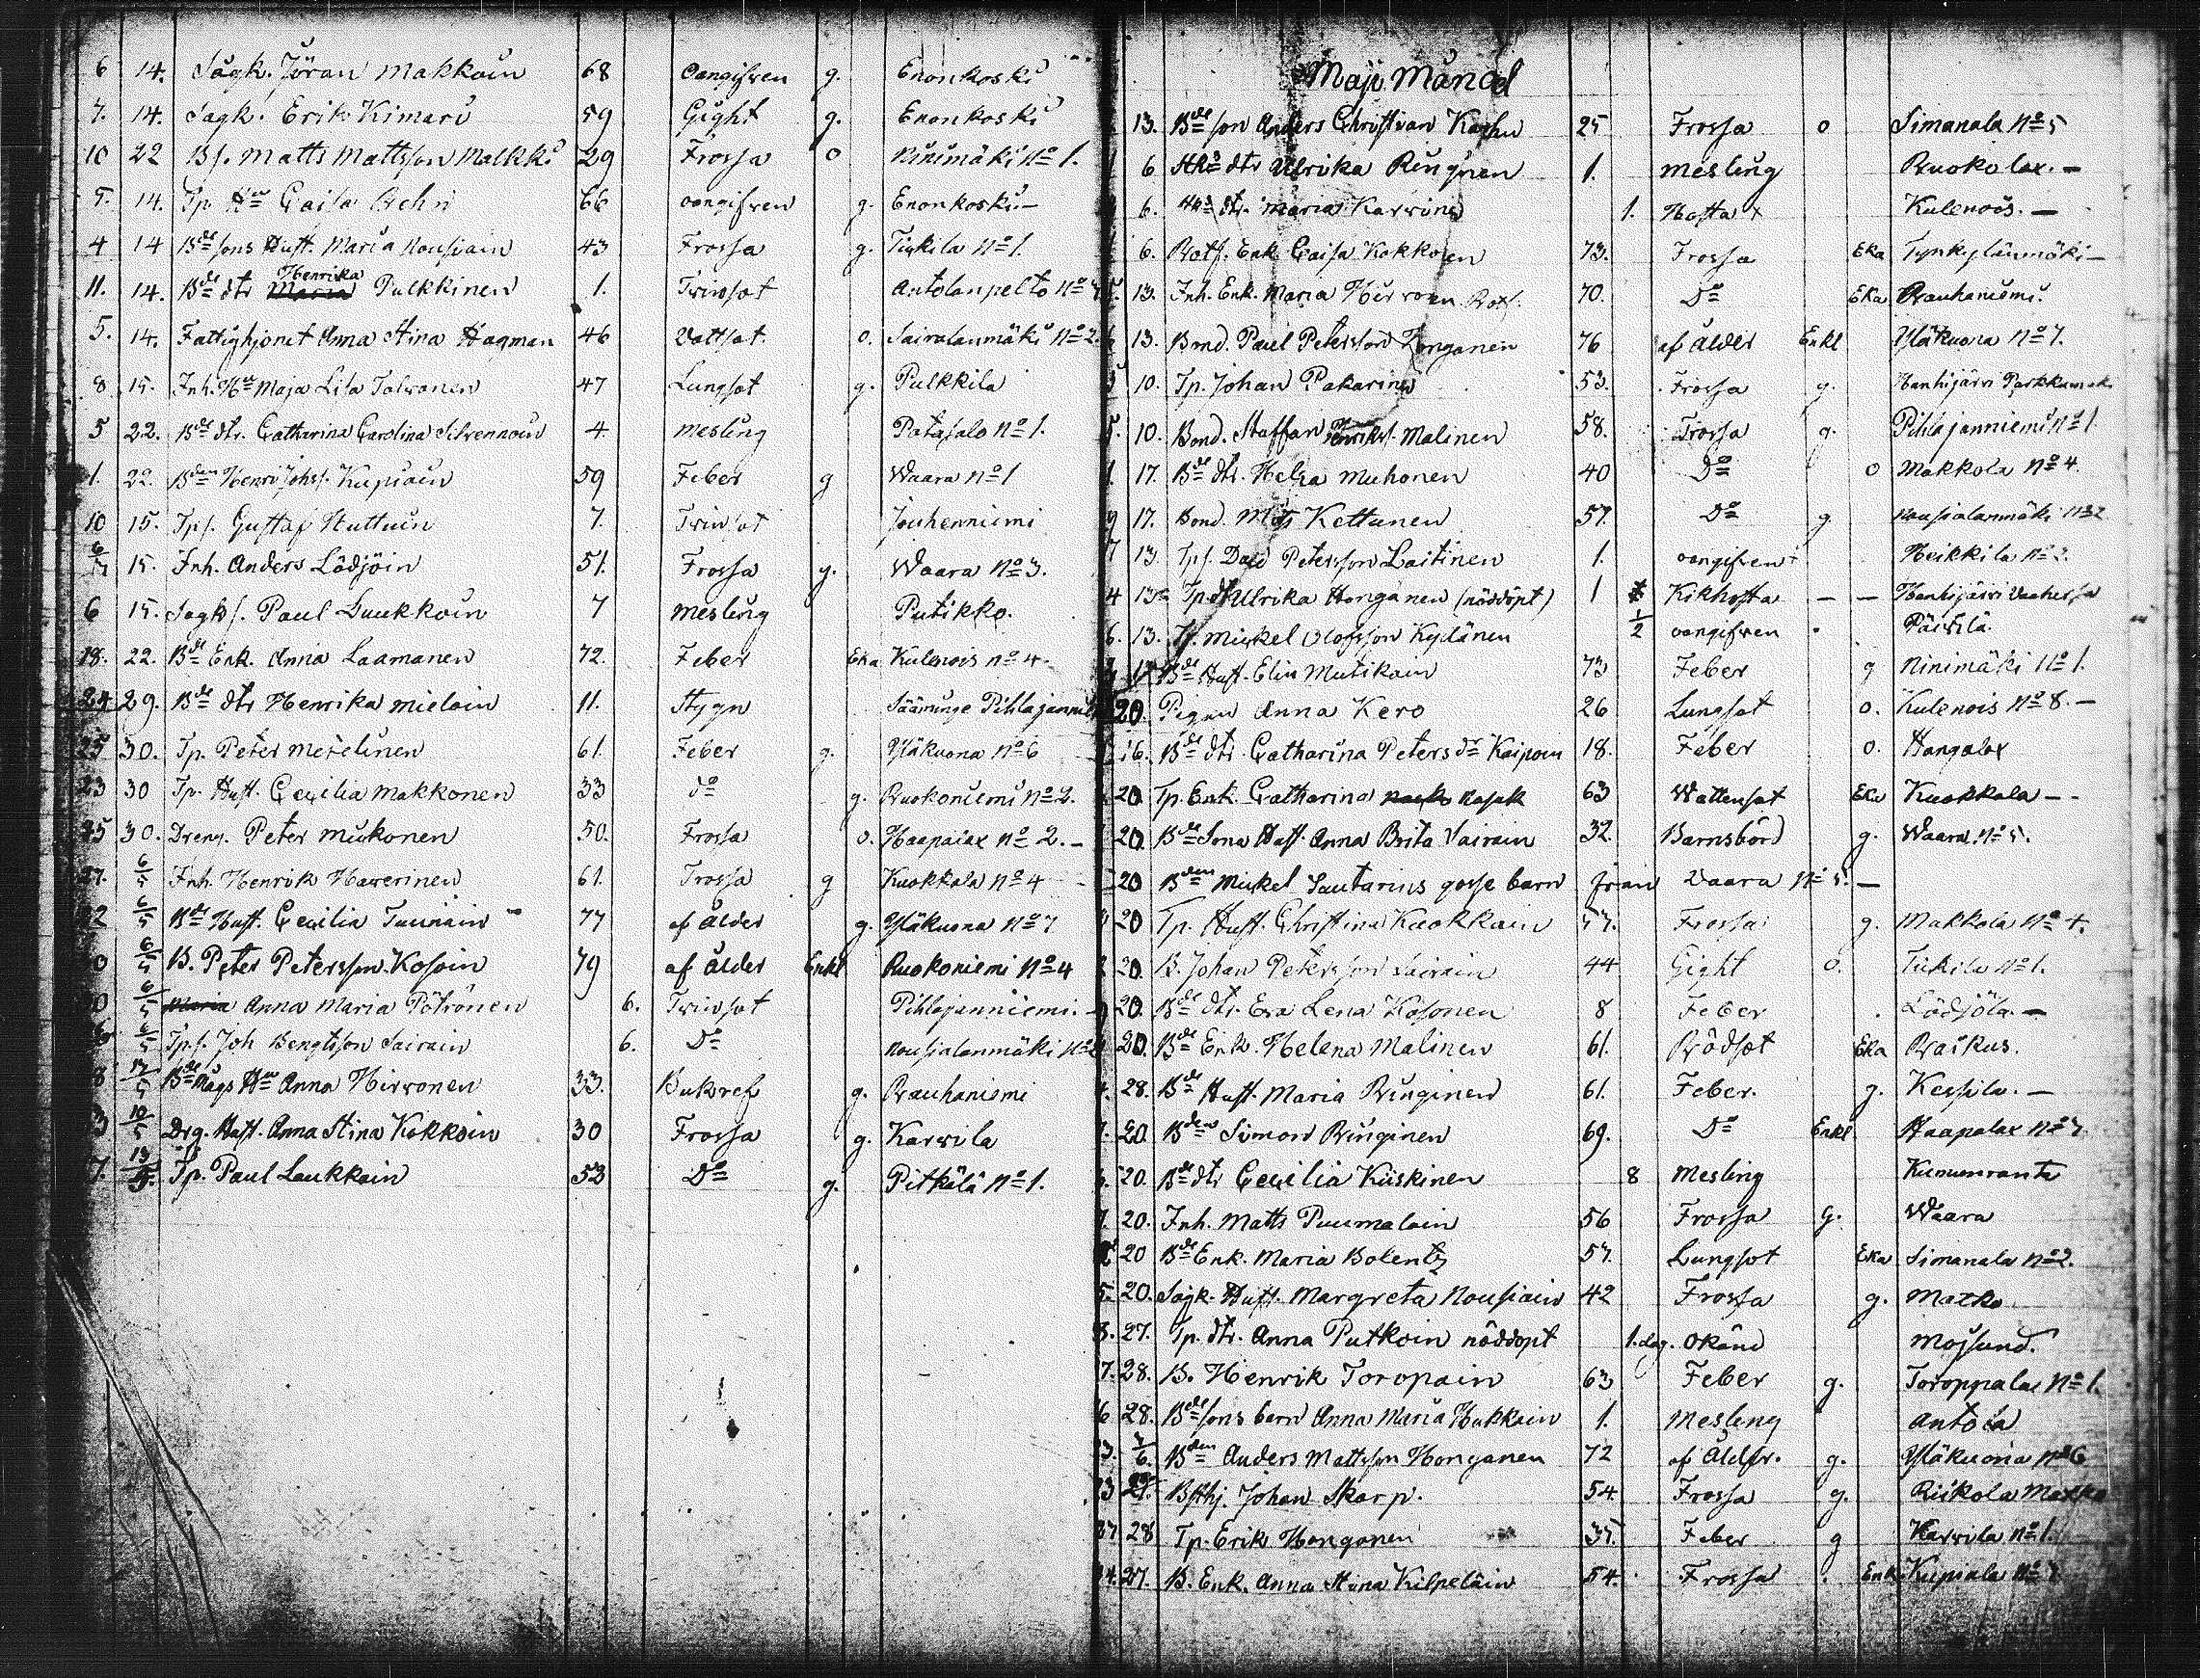 6 14. Sågk. Jöran Makkoin 68 oangifven g. Enonkoski
7. 14. Sagk. Erik Kimari 59 Gight g. Enonkoski
10 22 Bs. Matts Mattsson Malkki 29 Frossa o Ninimäki No 1.
14. Tp. Hu Caisa 66 oangifven g. Enonkoski –
4 14 Bde sons Hust. Maria Nousiain 43 Frossa g. Tiykila No 1.
11. 14. Bde dtr Henrika Pulkkinen 1. Twinsot Antolanpelto No
5. 14. Fattighjonet Anna Stina Hagman 46 Vattsot. o. Sairalanmäki No 2.
8 15. Inh. Hu Maja Lisa Tolvanen 47 Lungsot g. Pulkkila
5 22. Bde dtr. Catharina Carolina Silvennoin 4. Mesling Patasalo No 1.
1. 22. Bden Henr Johss. Kupiain 59 Feber g Waara No 1
10 15. Tps. Gustaf Huttuin 7. Twinsot Jouhenniemi
15. Inh. Anders Lödjöin 51. Frossa g. Waara No 3.
6 15. Sagks. Paul Luukkoin 7 Mesling Putikko.
18. 22. Bde Enk. Anna Laamanen 72. Feber Eka Kulenois No 4.
24 29. Bde dtr Henrika Mieloin 11. Stygn Sääminge Pihlajanniemi
25 30. Tp. Peter Metelinen 61. Feber g. Yläkuona No 6
23 30 Tp. Hust. Cecilia Makkonen 33 do g. Ruokoniemi No 2.
25 30. Dreng. Peter Muhonen 50. Frossa o. Haapalax No 2. –
27. 6/5 Inh. Henrik Hawerinen 61. Frossa g Kuokkala No 4
22 6/5 Bde Hust. Cecilia Tuunain 77 af Ålder g. Yläkuona No 7
6/5 B. Peter Petersson Kosoin 79 af Ålder Enkl Ruokoniemi No 4
6/5 Maria Anna Maria Pötrönen 6. Twinsot Pihlajanniemi.
6/5 Tps. Joh Bengtsson Sairain 6. Do Nousialanmäki No
8 Bde Mågs Hu Anna Hirvonen 33. Bukref g. Rauhaniemi
10/5 Drg. Hust. Anna Stina Kokkoin 30 Frossa g. Karvila
7. 13/5 Tp. Paul Laukkain 53 Do g. Pitkälä No 1.
Maji Månad
13. Bde son Anders Christian Kaşhu 25 Frossa o Simanala No 5
6 dtr Ulrika Ringinen 1. Mesling Ruokolax. –
6. dtr. Maria Karvine 1. Hosta Kulenois. –
6. Rotf. Enk. Caisa Kokkonen 73. Frossa Eka Tynkylänmäki –
13. Inh. Enk. Maria Hirvonen 70. Do Eka Rauhaniemi.
13. Bond. Paul Petersson Honganen 76 af ålder Enkl Yläkuona No 7.
10. Tp. Johan Pakarine 53. Frossa g. Hanhijärvi
5. 10. Bond. Staffan Henrikss. Malinen 58. Frossa g. Pihlajanniemi No 1
17. Bde dtr. Helga Muhonen 40 Do o Makkola No 4.
9 17. Bond. Mats Kettunen 57. Do g. Nousialanmäki No 2
7 13. Tps. David Petersson Laitinen 1. oangifven Heikkila No 2.
4 13 Tp. dtr Ulrika Honganen (nöddöpt) 1 Kikhosta – – Hanhijärvi
6. 13. Tps. Mickel Olofsson Kylänen 1/2 oangifven Päivilä.
13 Bde Hust. Elin Mutikain 73 Feber g Ninimäki No 1.
20. Pigan Anna Kero 26 Lungsot o. Kulenois No 8. –
16. Bde dtr. Catharina Peters dr Kaipoin 18. Feber o. Hangalax
20 Tp. Enk. Catharina Kasak 63 Wattensot Eka Kuokkala – -
20. Bde Sons Hust. Anna Brita Sairain 32. Barnsbörd g. Waara No 5.
20 Bden Mickel Sautarius gosse barn från Vaara No 5. –
20 Tp. Hust. Christina Kuokkain 57. Frossa g. Makkola No 4.
20. B. Johan Petersson Sairain 44 Gight o. Tiikila No 1.
20. Bde dtr. Eva Lena Kosonen 8 Feber Lödjöla. –
20. Bde Enk. Helena Malinen 61. Rödsot Eka Raikus.
28. Bde Hust. Maria Ringinen 61. Feber. g. Kessila. –
20. Bden Simon Ringinen 69. Do Enkl Haapalax No 7
20. Bde dtr Cecilia Kiiskinen 8 Mesling Kumunranta
20. Inh. Matts Puumalain 56 Frossa g. Waara
20 Bde Enk. Maria Bolentz 57. Lungsot Eka Simanala No 2.
5. 20. Sågk. Hust. Margreta Nousiain 42 Frossa g. Matko
8. 27. Tp. dtr. Anna Putkoin nöddopt 1. dag. okänd Mojsund.
7. 28. B. Henrik Toropain 63 Feber g. Toroppala No 1.
6 28. Bde sons barn Anna Maria Hukkain 1. Mesling Antola
3. 3/6. Bden Anders Mattsson Honganen 72 af Ålder. g. Yläkuona No 6
Johan Skarp. 54. Frossa g. Riikola
28 Tp. Erik Honganen 35. Feber g Karvila No 1.
27. B. Enk. Anna Stina Kilpeläin 54. Frossa Enk Kupiala No 7